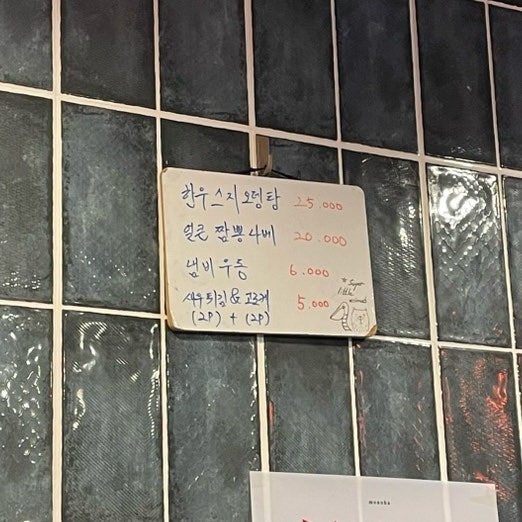 한우스지오뎅탕 25.000
얼큰 짬뽕나베 20.000
냄비우동 6.000
새우튀김 & 고로케 5.000
(2P) + (2P)